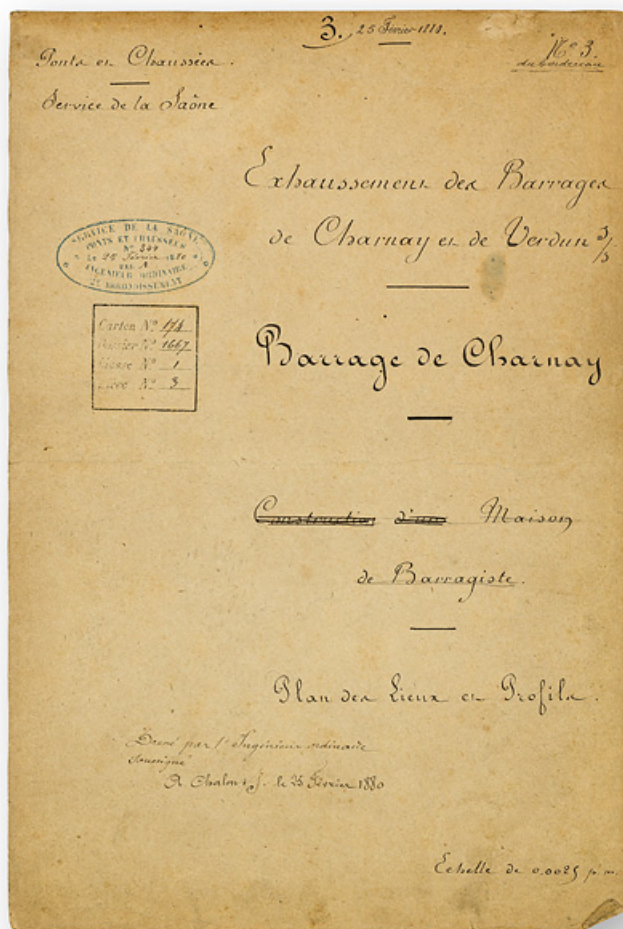 3. 25 Février 1880.
N° 3
du bordereau
Ponts et Chaussées.
Service de la Saône
Exhaussement des Barrages
de Charnay et de Verdun s/s
SERVICE DE LA SAÔNE
PONTS ET CHAUSSÉES
N° 344
Le 25 Février 1880
INGÉNIEUR ORDINAIRE
2e ARRONDISSEMENT
Carton N° 174
Dossier N° 1667
Liasse N° 1
Pièce N° 3
Barrage de Charnay
Construction d'une Maison
de Barragiste.
Plan des Lieux et Profils.
Dressé par l'Ingénieur ordinaire
soussigné
A Chalon s/s. le 25 Février 1880
Echelle de 0.0025 p. m.